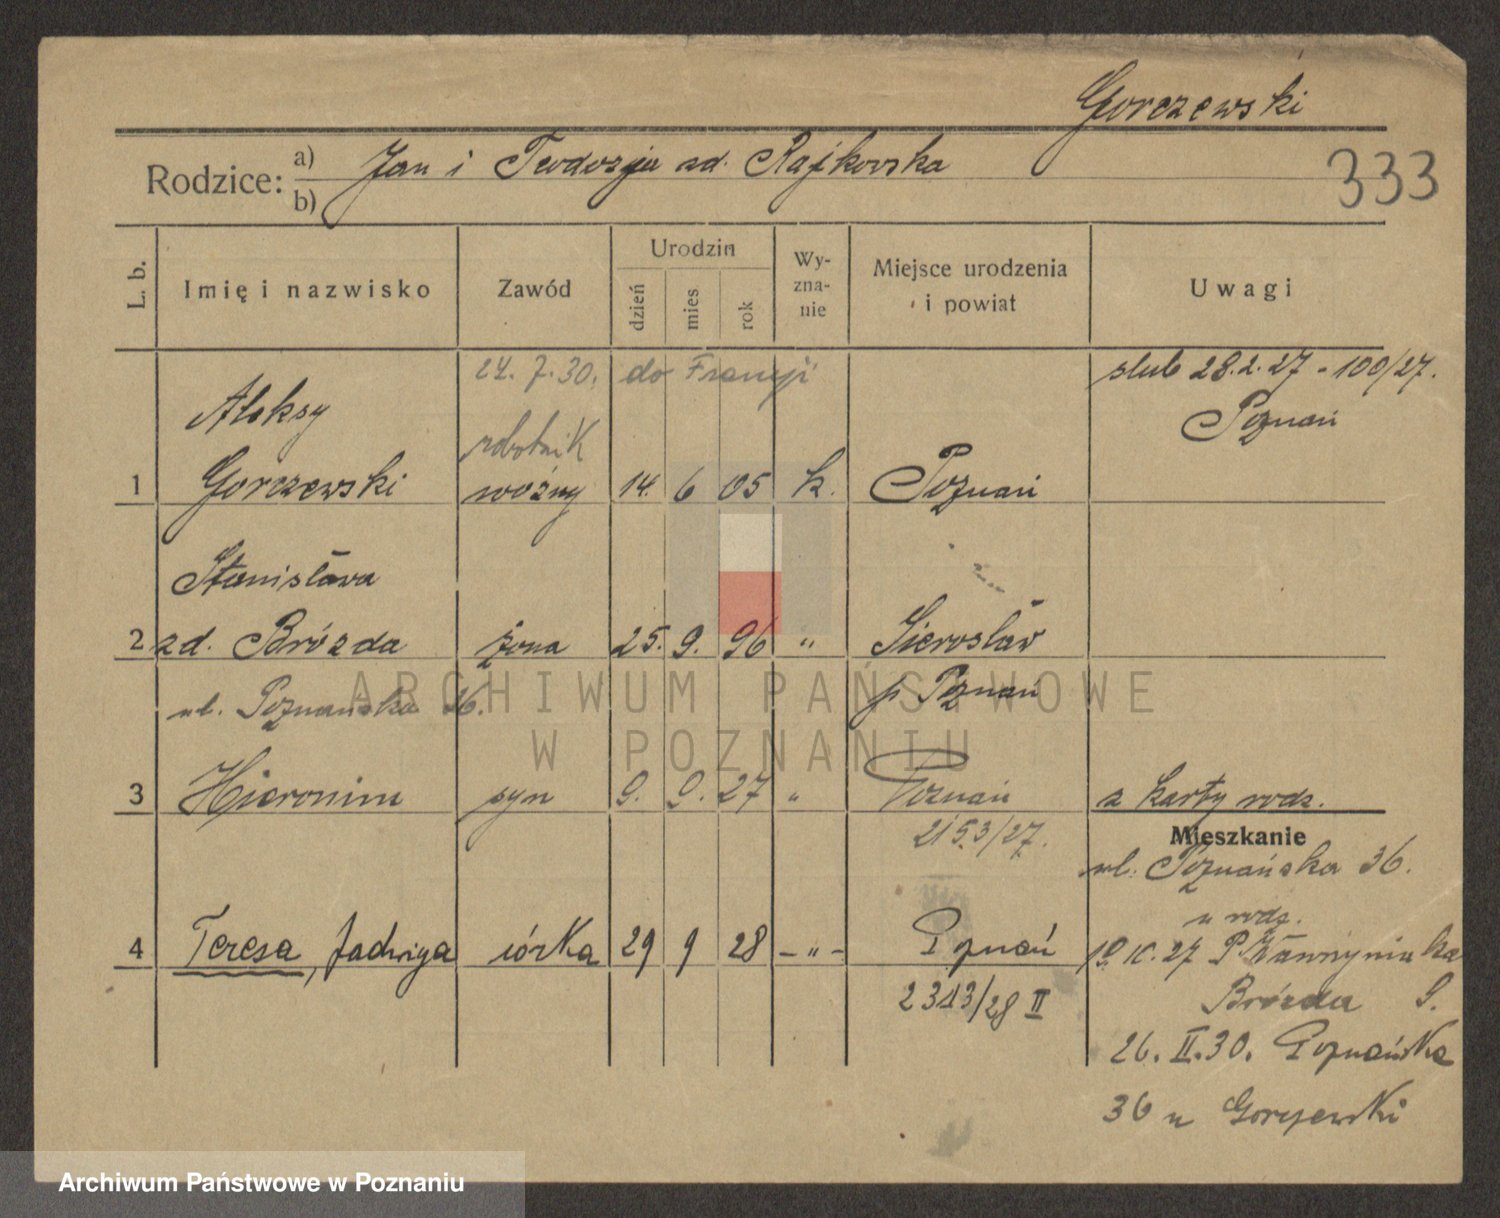 Gorczewski
Rodzice: a) Jan i Teodozja zd. Rajkowska
b)
333
L. b. Imię i nazwisko Zawód Urodzin dzień mies rok Wyznanie Miejsce urodzenia i powiat Uwagi
24. 7. 30. do Francji ślub 28. 2. 27 - 100/27.
Aleksy robotnik Poznań
1 Gorczewski woźny 14. 6 05 k. Poznań
Stanisława
2 zd. Brózda żona 25. 9. 96 " Sierosław
ul. Poznańska 36. p Poznań
3 Hieronim syn 9. 9. 27 " Poznań z karty rodz.
2153/27. Mieszkanie
ul. Poznańska 36.
u rodz.
4 Teresa, Jadwiga córka 29 9 28 - " - Poznań 10. 10. 27 P. Wawrzyniaka
2313/28 II Brózda 9.
26. II. 30. Poznańska
36 u Gorczewski
ARCHIWUM PAŃSTWOWE
W POZNANIU
Archiwum Państwowe w Poznaniu